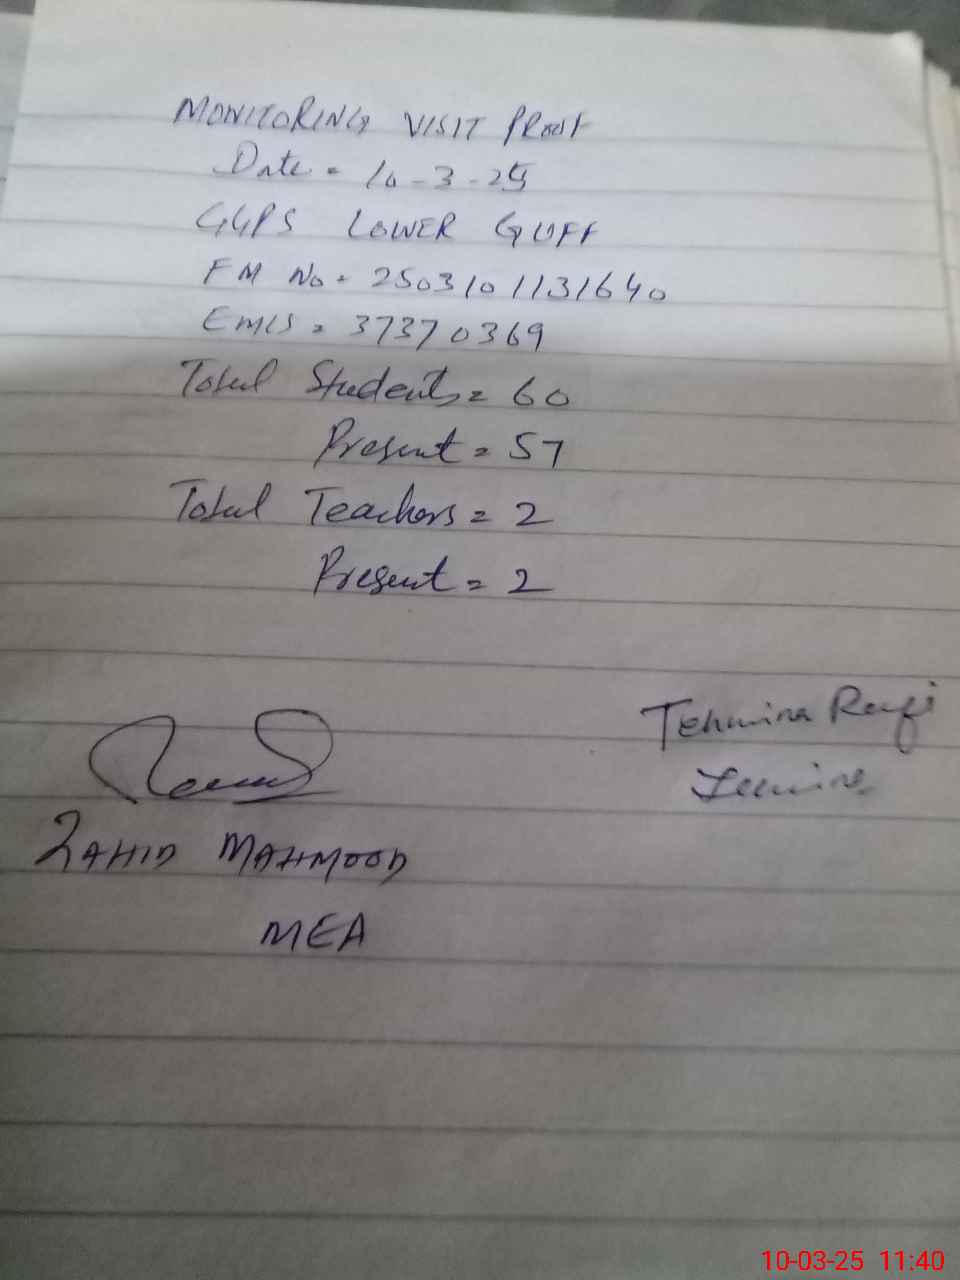 MONITORING VISIT PROOF
Date = 10-3-25
GGPS LOWER GUFF
FM No = 2503101131640
EMIS = 37370369
Total Students = 60
Present = 57
Total Teachers = 2
Present = 2
Tehmina Raufi
ZAHID MAHMOOD
MEA
10-03-25 11:40